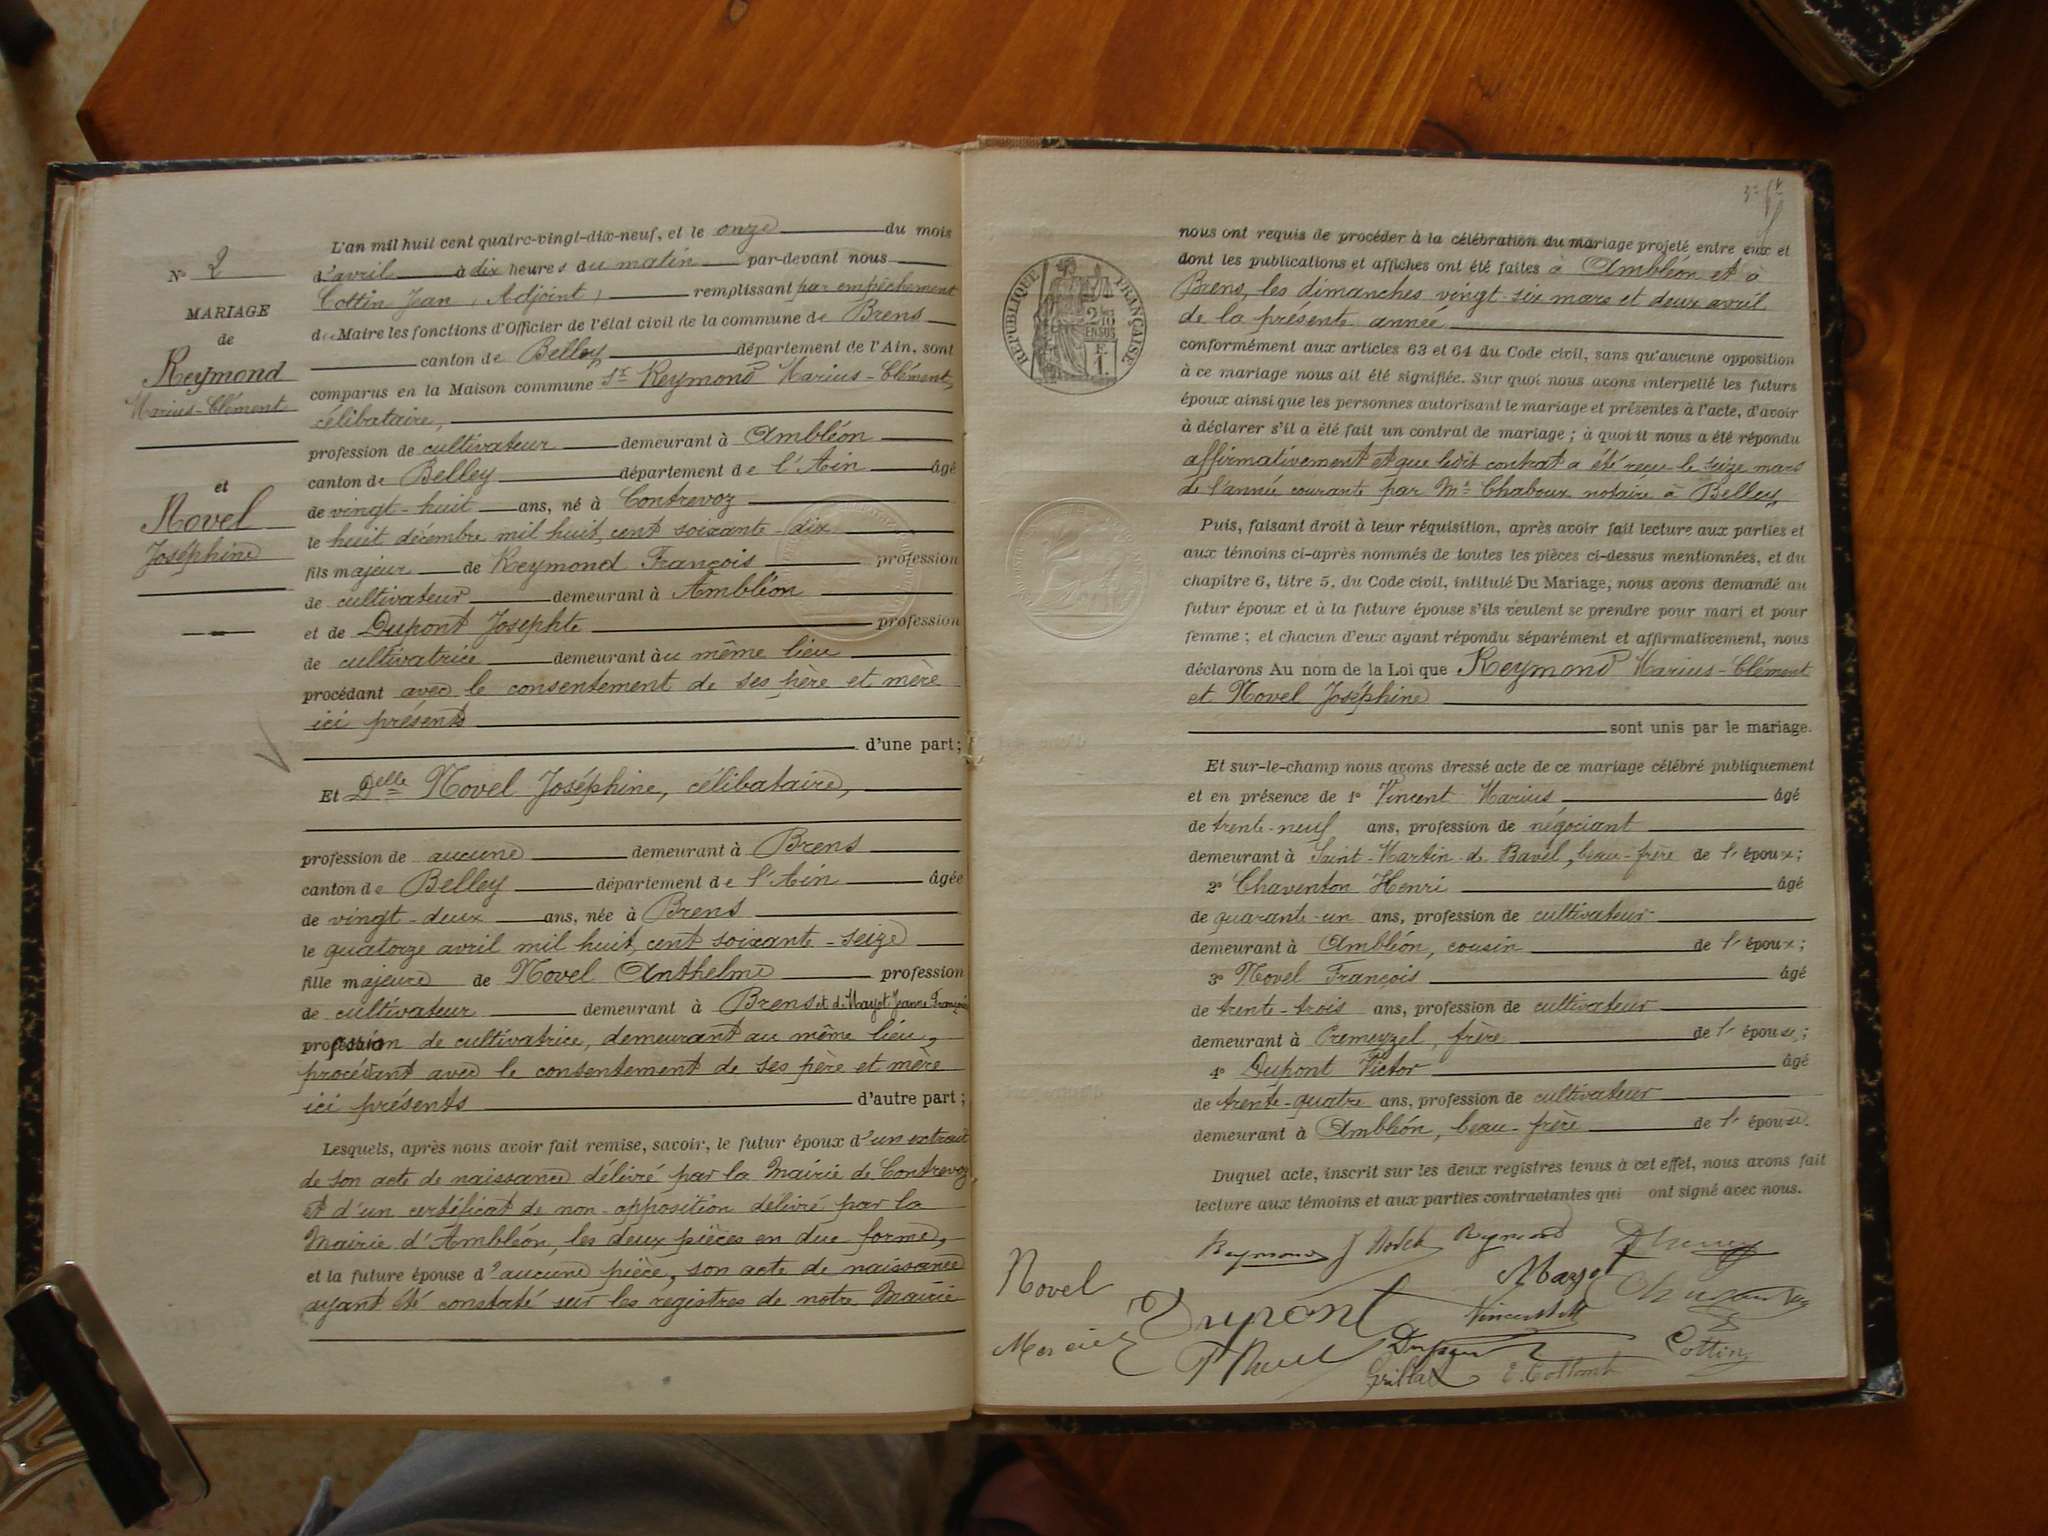 N° 2
MARIAGE
de
Reymond
Marius-Clément
et
Novel
Joséphine
L'an mil huit cent quatre-vingt-dix-neuf, et le onze du mois
d'avril à dix heures du matin par-devant nous
Cottin Jean, Adjoint, remplissant par empêchement
du Maire les fonctions d'Officier de l'état civil de la commune de Brens
canton de Belley département de l'Ain, sont
comparus en la Maison commune Sr Reymond Marius-Clément,
célibataire,
profession de cultivateur demeurant à Ambléon
canton de Belley département de l'Ain âgé
de vingt-huit ans, né à Contrevoz
le huit décembre mil huit cent soixante-dix
fils majeur de Reymond François profession
de cultivateur demeurant à Ambléon
et de Dupont Josephte profession
de cultivatrice demeurant au même lieu
procédant avec le consentement de ses père et mère
ici présents
d'une part;
Et Delle Novel Joséphine, célibataire,
profession de aucune demeurant à Brens
canton de Belley département de l'Ain âgée
de vingt-deux ans, née à Brens
le quatorze avril mil huit cent soixante-seize
fille majeure de Novel Anthelme profession
de cultivateur demeurant à Brens et de Mayot Jeanne Françoise
profession de cultivatrice, demeurant au même lieu,
procédant avec le consentement de ses père et mère
ici présents d'autre part;
Lesquels, après nous avoir fait remise, savoir, le futur époux d'un extrait
de son acte de naissance délivré par la Mairie de Contrevoz
et d'un certificat de non-opposition délivré par la
Mairie d'Ambléon, les deux pièces en due forme,
et la future épouse d'aucune pièce, son acte de naissance
ayant été constaté sur les registres de notre Mairie
RÉPUBLIQUE FRANÇAISE
nous ont requis de procéder à la célébration du mariage projeté entre eux et
dont les publications et affiches ont été faites à Ambléon et à
Brens, les dimanches vingt-six mars et deux avril
de la présente année
conformément aux articles 63 et 64 du Code civil, sans qu'aucune opposition
à ce mariage nous ait été signifiée. Sur quoi nous avons interpellé les futurs
époux ainsi que les personnes autorisant le mariage et présentes à l'acte, d'avoir
à déclarer s'il a été fait un contrat de mariage; à quoi il nous a été répondu
affirmativement et que ledit contrat a été reçu le seize mars
de l'année courante par Me Chaboux notaire à Belley
Puis, faisant droit à leur réquisition, après avoir fait lecture aux parties et
aux témoins ci-après nommés de toutes les pièces ci-dessus mentionnées, et du
chapitre 6, titre 5, du Code civil, intitulé Du Mariage, nous avons demandé au
futur époux et à la future épouse s'ils veulent se prendre pour mari et pour
femme; et chacun d'eux ayant répondu séparément et affirmativement, nous
déclarons Au nom de la Loi que Reymond Marius-Clément
et Novel Joséphine
sont unis par le mariage.
Et sur-le-champ nous avons dressé acte de ce mariage célébré publiquement
et en présence de 1° Vincent Marius âgé
de trente-neuf ans, profession de négociant
demeurant à Saint-Martin-de-Bavel, beau-frère de l'époux;
2° Chaventon Henri âgé
de quarante-un ans, profession de cultivateur
demeurant à Ambléon, cousin de l'époux;
3° Novel François âgé
de trente-trois ans, profession de cultivateur
demeurant à Cremeyzel, frère de l'épouse;
4° Dupont Victor âgé
de trente-quatre ans, profession de cultivateur
demeurant à Ambléon, beau-frère de l'épouse.
Duquel acte, inscrit sur les deux registres tenus à cet effet, nous avons fait
lecture aux témoins et aux parties contractantes qui ont signé avec nous.
Reymond J Novel Reymond
Novel Mayot
Dupont Vincent M
Mercier Cottin